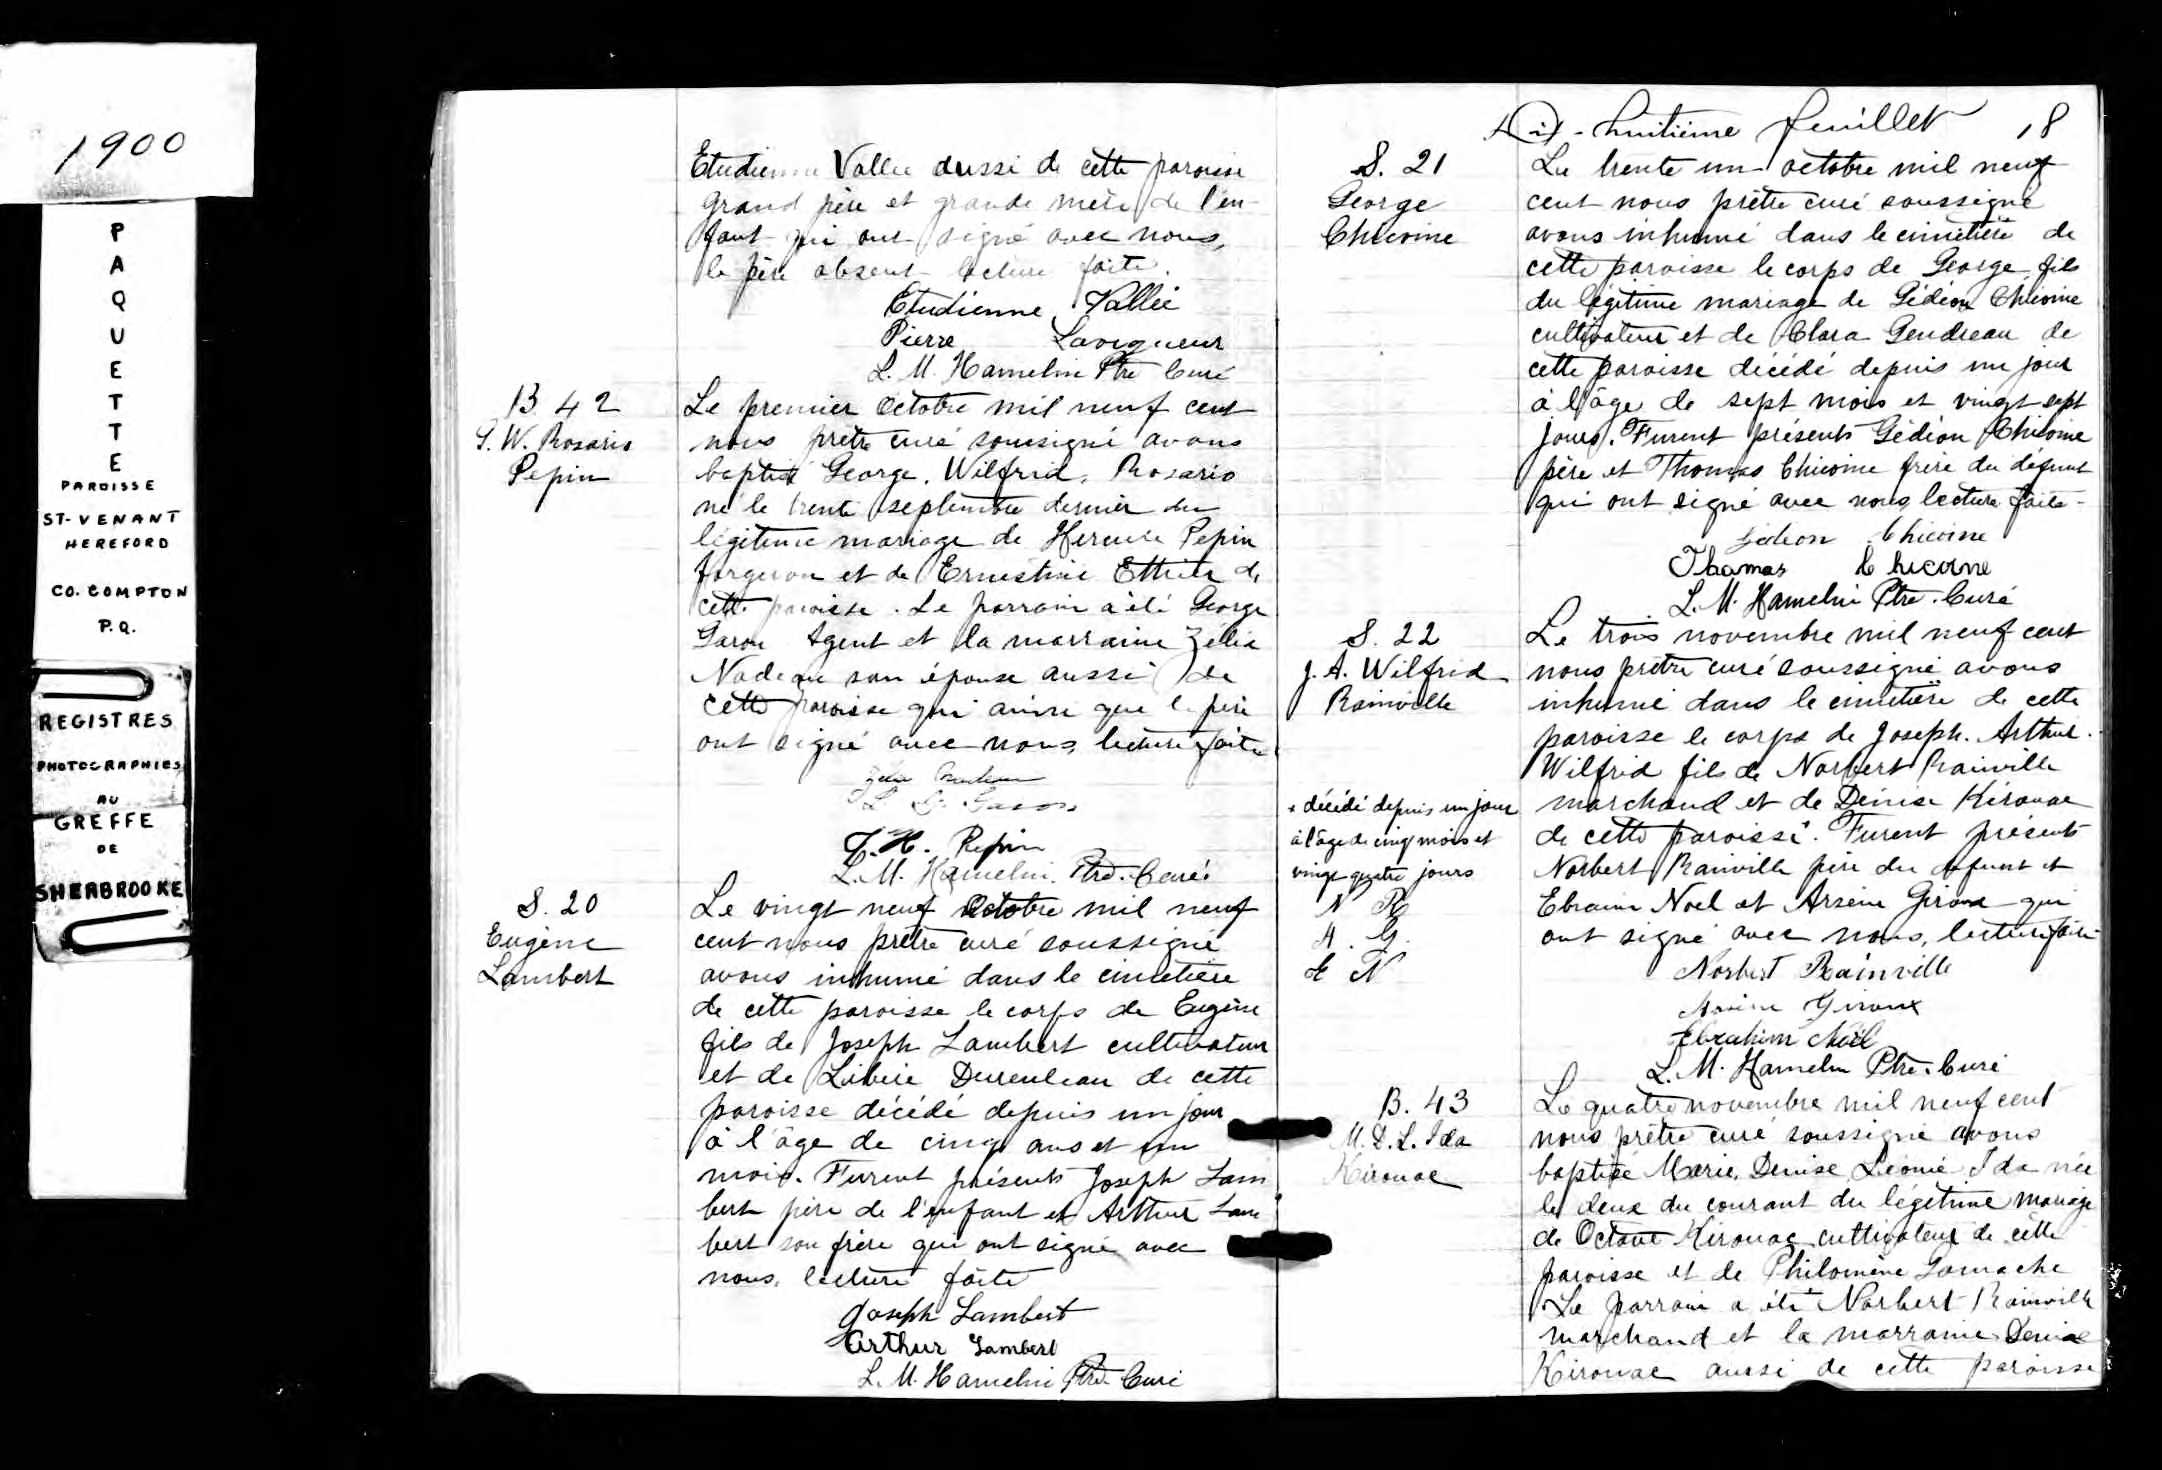 1900
P
A
Q
U
E
T
T
E
PAROISSE
ST-VENANT
HEREFORD
CO. COMPTON
P.Q.
REGISTRES
PHOTOGRAPHIES
AU
GREFFE
DE
SHERBROOKE
Etudienne Vallee aussi de cette paroisse
grand père et grande mère de l'en-
fant qui ont signé avec nous,
le père absent lecture faite.
Etudienne Vallée
Pierre Lavigueur
L. M. Hamelin Ptre Curé
B 42
G. W. Rosario
Pepin
Le premier Octobre mil neuf cent
nous prêtre curé soussigné avons
baptisé George, Wilfrid, Rosario
né le trente septembre dernier du
légitime mariage de Hercule Pepin
forgeron et de Ernestine Ethier de
cette paroisse. Le parrain a été George
Garon Agent et la marraine Zélia
Nadeau son épouse aussi de
cette paroisse qui ainsi que le père
ont signé avec nous, lecture faite
Garon
J. H. Pepin
L. M. Hamelin Ptre. Curé.
S. 20
Eugène
Lambert
Le vingt neuf Octobre mil neuf
cent nous prêtre curé soussigné
avons inhumé dans le cimetière
de cette paroisse le corps de Eugène
fils de Joseph Lambert cultivateur
et de Libère Durenleau de cette
paroisse décédé depuis un jour
à l'âge de cinq ans et un
mois. Furent présents Joseph Lam
bert père de l'enfant et Arthur Lam
bert son frère qui ont signé avec
nous, lecture faite
Joseph Lambert
Arthur Lambert
L. M. Hamelin Ptre Curé
Dix-huitième feuillet 18
S. 21
George
Chicoine
Le trente un octobre mil neuf
cent nous prêtre curé soussigné
avons inhumé dans le cimetière de
cette paroisse le corps de George fils
du légitime mariage de Gédéon Chicoine
cultivateur et de Clara Gendreau de
cette paroisse décédé depuis un jour
à l'âge de sept mois et vingt sept
jours. Furent présents Gédéon Chicoine
père et Thomas Chicoine frère du défunt
qui ont signé avec nous, lecture faite-
Gédeon Chicoine
Thomas Chicoine
L. M. Hamelin Ptre. Curé
S. 22
J. A. Wilfrid
Rainville
Le trois novembre mil neuf cent
nous prêtre curé soussigné avons
inhumé dans le cimetière de cette
paroisse le corps de Joseph. Arthur.
Wilfrid fils de Norbert Rainville
marchand et de Denise Kirouac
de cette paroisse. Furent présents
Norbert Rainville père du défunt et
Ebraim Noel et Arsène Giroux qui
ont signé avec nous, lecture faite
+ décédé depuis un jour
à l'âge de cinq mois et
vingt quatre jours
N R
A. G.
E N
Norbert Rainville
Arsène Giroux
Ebrahim Noël
L. M. Hamelin Ptre. Curé
B. 43
M. D. L. Ida
Kirouac
Le quatre novembre mil neuf cent
nous prêtre curé soussigné avons
baptisé Marie, Denise Léonie, Ida née
le deux du courant du légitime mariage
de Octave Kirouac cultivateur de cette
paroisse et de Philomène Gamache
Le parrain a été Norbert Rainville
marchand et la marraine Denise
Kirouac aussi de cette paroisse